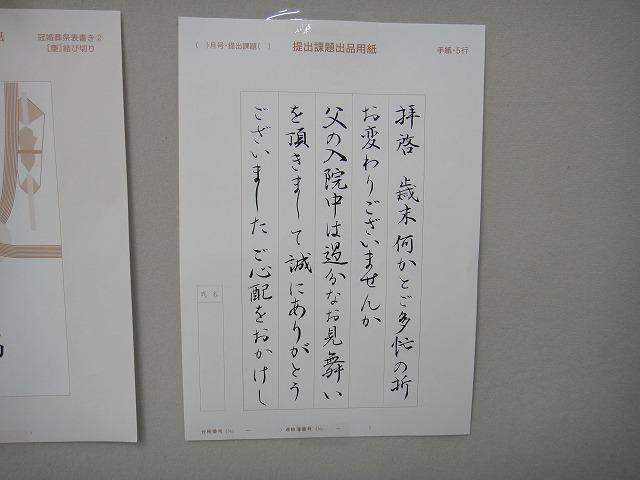 冠婚葬祭表書き②
[慶]結び切り
( )月号・提出課題( )
提出課題出品用紙
手紙・5行
拝啓 歳末何かとご多忙の折
お変わりございませんか
父の入院中は過分なお見舞い
を頂きまして誠にありがとう
ございました ご心配をおかけし
氏名